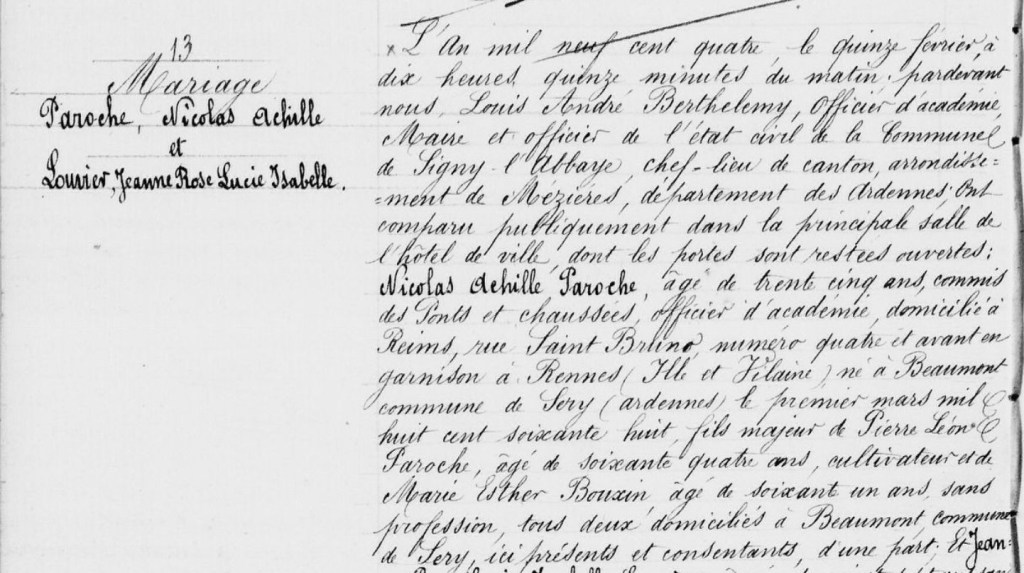 13
Mariage
Paroche, Nicolas Achille
et
Louvier, Jeanne Rose Lucie Isabelle.
L'An mil neuf cent quatre le quinze février, à
dix heures, quinze minutes du matin, pardevant
nous, Louis André Berthelemy, Officier d'académie,
Maire et officier de l'état civil de la Commune
de Signy-l'Abbaye, chef-lieu de canton, arrondisse=
=ment de Mézières, département des Ardennes; Ont
comparu publiquement dans la principale salle de
l'hôtel de ville, dont les portes sont restées ouvertes:
Nicolas Achille Paroche, âgé de trente cinq ans, commis
des Ponts et chaussées, officier d'académie, domicilié à
Reims, rue Saint Bruno, numéro quatre et avant en
garnison à Rennes (Ille et Vilaine) né à Beaumont
commune de Sery (ardennes) le premier mars mil
huit cent soixante huit, fils majeur de Pierre Léon
Paroche, âgé de soixante quatre ans, cultivateur et de
Marie Esther Bouxin âgé de soixant un ans, sans
profession, tous deux domiciliés à Beaumont commune
de Sery, ici présents et consentants, d'une part; Et Jean=